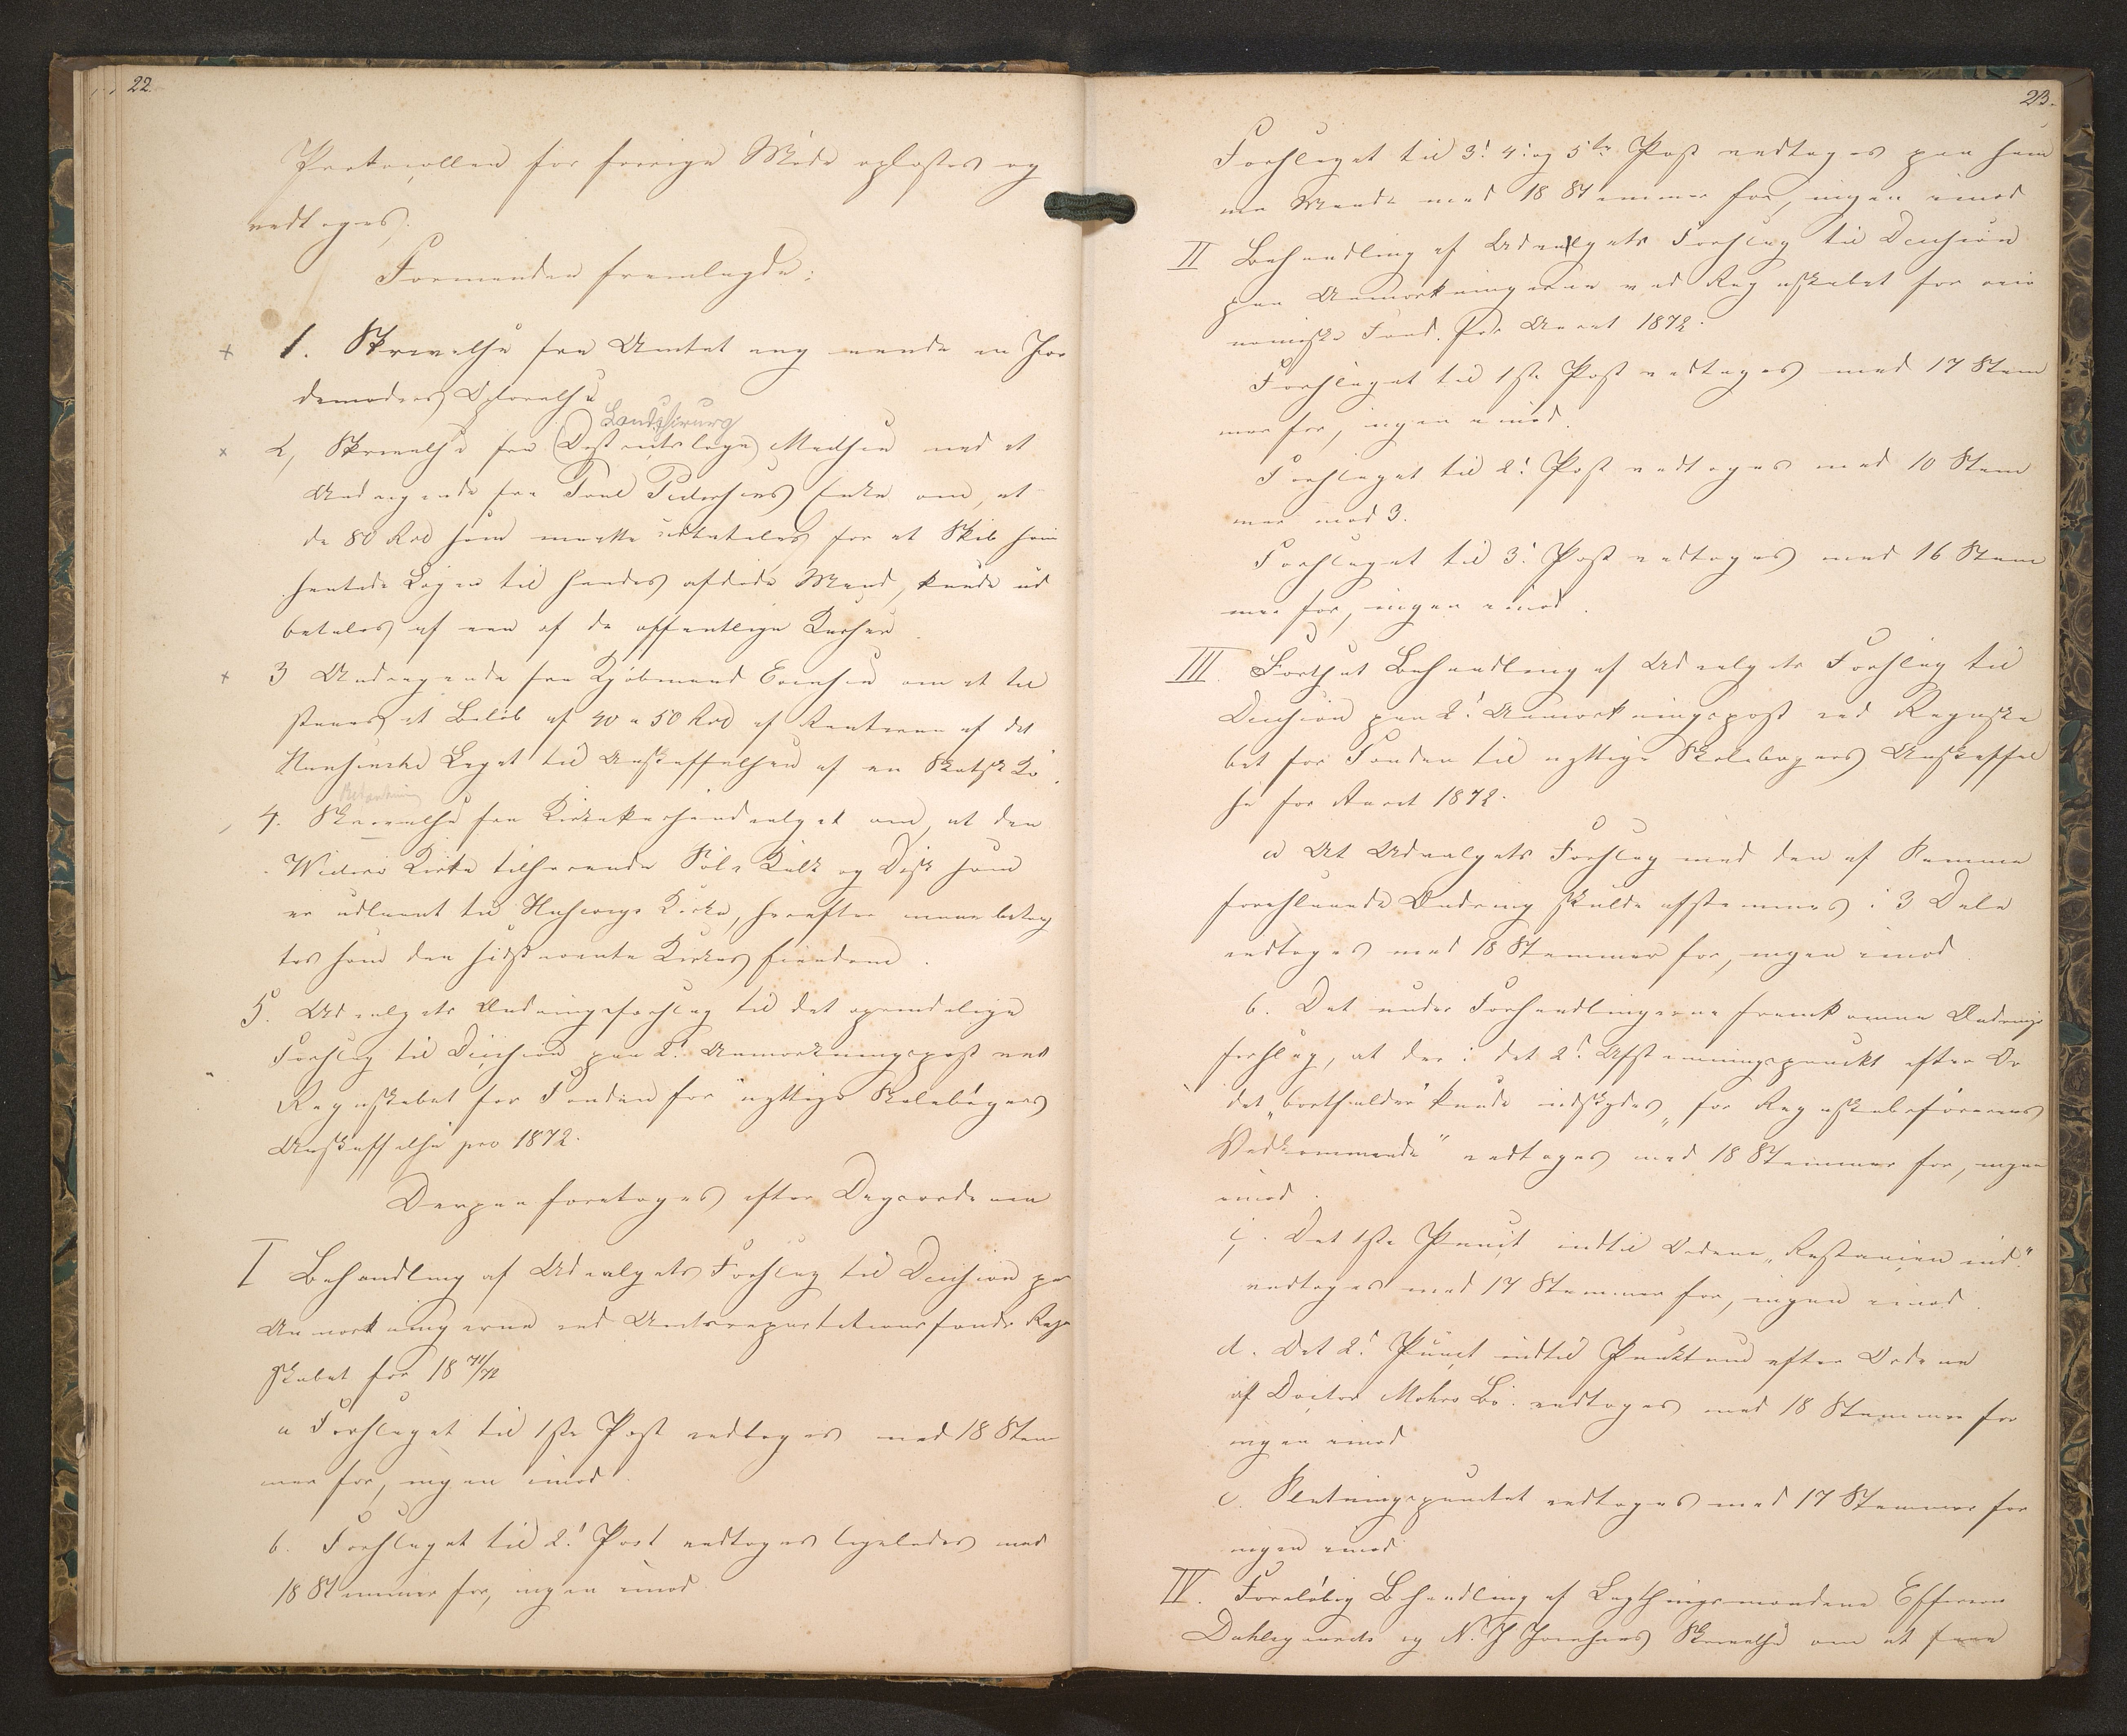 22
Protocollen for forrige Møde oplæstes og
vedtoges.
Formanden fremlagde:
1. Skrivelse fra Amtet angaaende en Jor
demoders Oplærelse
Landschirurg
2, Skrivelse fra Distriktslæge Madsen med et
Andragende fra Poul Pedersens Enke om, at
de 80 Rd som maatte udbetales for et Skib som
hentede Lægen til hendes afdøde Mand, kunde ud
betales af een af de offentlige Kasser.
3 Andragende fra Kjøbmand Evensen om at til
staaes et Beløb af 40 a 50 Rd af Renterne af det
Legat til Anskaffelsen af en Skotsk Ko.
Betænkning
4. Skrivelse fra Kirkekasseudvalget om, at den
Viderø Kirke tilhørende Sølv Kalk og Disk som
er udlaant til Husevigs Kirke, herefter maa betrag
tes som den sidstnævnte Kirkes Eiendom.
5. Udvalgets Ændringsforslag til det oprindelige
Forslag til Decision paa 2d Anmærkningspost ved
Regnskabet for Fonden for nyttige Skolebøgers
Anskaffelse pro 1872.
Derpaa foretoges efter Dagsordenen
I Behandling af Udvalgets Forslag til Decision pa
Anmærkningerne ved Amtsrepartitionsfonds Regn
skabet for 18 71/72
a Forslaget til 1ste Post vedtoges med 18 Stem
mer for, ingen imod.
b. Forslaget til 2d Post vedtoges ligeledes med
18 Stemmer for, ingen imod
23.
Forslaget til 3d 4d og 5te Post vedtoges paa sam
me Maade med 18 Stemmer for, ingen imod
II Behandling af Udvalgets Forslag til Decision
paa Anmærkningerne ved Regnskabet for oeio
nomiske Fond. for Aaret 1872.
Forslaget til 1ste Post vedtoges med 17 Stem
mer for, ingen imod.
Forslaget til 2d Post vedtoges med 10 Stem
mer mod 3.
Forslaget til 3d Post vedtoges med 16 Stem
mer for, ingen imod.
III. Fortsat Behandling af Udvalgets Forslag til
Decision paa 2d Anmærkningspost ved Regnska
bet for Fonden til nyttige Skolebøgers Anskaffel
se for Aaret 1872.
a At Udvalgets Forslag med den af Samme
foreslaaede Ændring skulde afstemmes i 3 Dele
vedtoges med 18 Stemmer for, ingen imod.
b. Det under Forhandlingerne fremkomne Ændrings
forslag, at der i det 2d Afstemningspunckt efter Or
det „bortfalder" kunde indskydes „for Regnskabsførerens
Vedkommende" vedtoges med 18 Stemmer for, ingen
imod.
c. Det 1ste Punct indtil Ordene „Restancen ind".
vedtoges med 17 Stemmer for, ingen imod.
d. Det 2d Punct indtil Punktum efter Ordene
af Doctor Mohrs Bo. vedtoges med 18 Stemmer for
ingen imod
e. Slutningspunctet vedtoges med 17 Stemmer for
ingen imod
IV. Foreløbig Behandling af Lagthingsmændene Effersøe
Dahlsgaards og N. J. Joensens Skrivelse om at faae